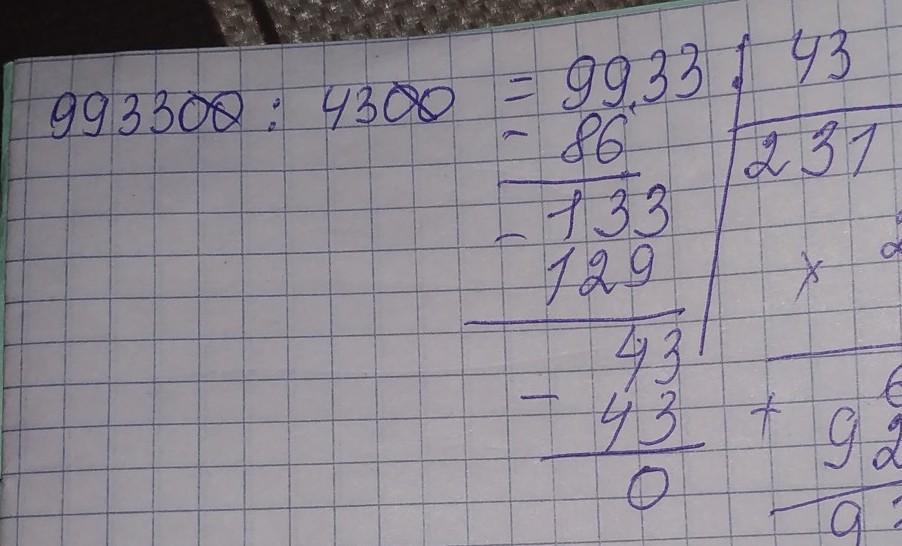 993300 : 4300 = 9933 : 43
- 86
231
- 133
129
×
43
- 43
+ 92
0